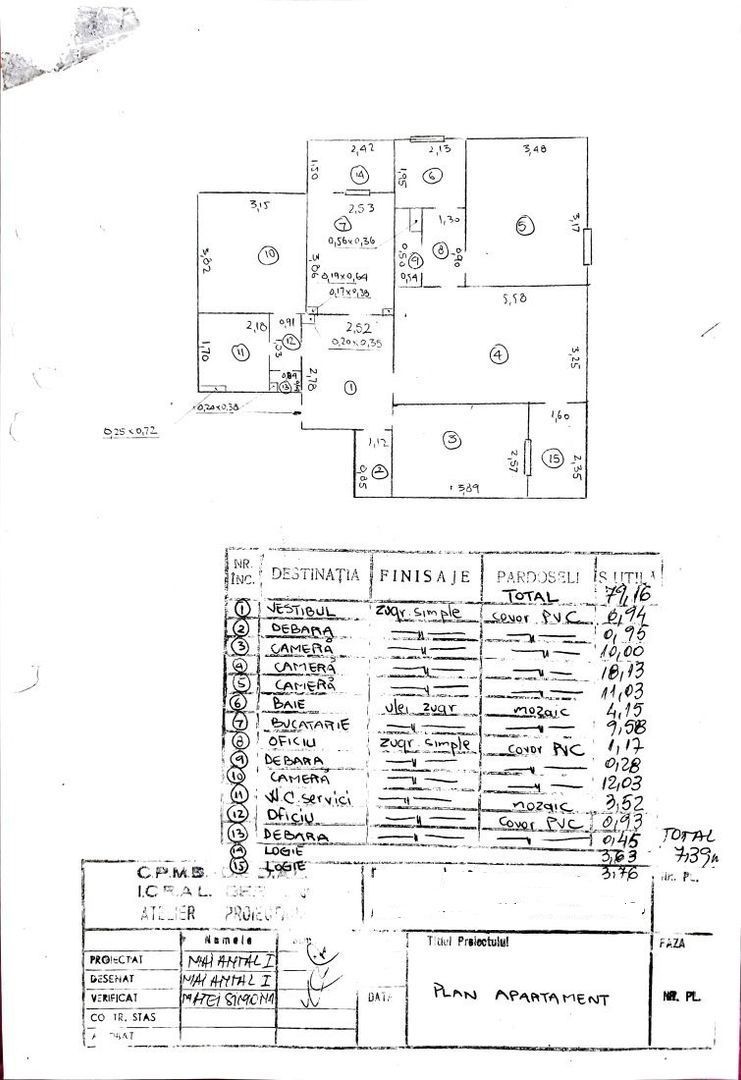 2,42
2,13
3,48
1,50
14
1,95
6
3,15
2,53
7
1,30
5
3,17
0,56x0,36
8
3,82
10
3,86
0,50
9
0,90
0,19x0,64
0,54
0,17x0,38
5,58
2,18
0,91
2,52
12
1,70
11
0,20x0,35
4
3,25
0,89
2,78
13
1
0,20x0,38
1,60
0,25x0,72
1,12
3
2,57
2,35
0,85
2
15
3,89
NR. INC. DESTINAȚIA FINISAJE PARDOSELI S UTILA
TOTAL 79,16
1 VESTIBUL zugr. simple covor PVC
2 DEBARA —"— —"— 0,95
3 CAMERĂ —"— —"— 10,00
4 CAMERĂ —"— —"— 18,13
5 CAMERĂ —"— —"— 11,03
6 BAIE ulei zugr mozaic 4,15
7 BUCATARIE —"— —"— 9,58
8 OFICIU zugr simple covor PVC 1,17
9 DEBARA —"— —"— 0,28
10 CAMERĂ —"— —"— 12,03
11 W.C. servici —"— mozaic 3,52
12 OFICIU —"— covor PVC 0,93
13 DEBARA —"— —"— 0,45 TOTAL
14 LOGIE 3,63 7,39
15 LOGIE 3,76
C.P.M.B.
I.C.R.A.L.
ATELIER PROIECT
NR. PL.
Numele
Titlul Proiectului FAZA
PROIECTAT MAI ANTAL I
DESENAT MAI ANTAL I
VERIFICAT MATEI SIMONA
DATA PLAN APARTAMENT NR. PL.
CO TR. STAS